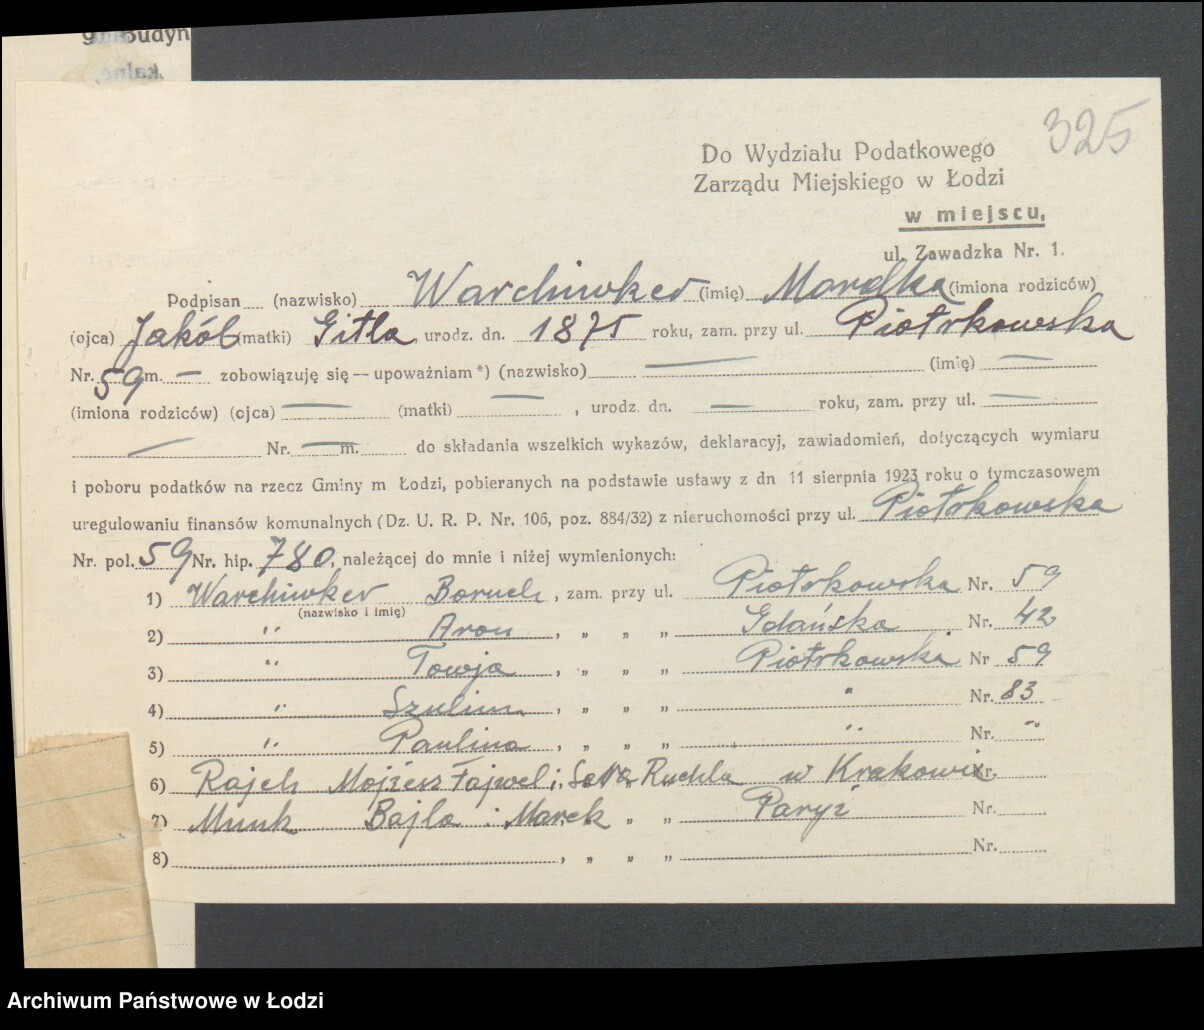 g. Budyn
325
Do Wydziału Podatkowego
Zarządu Miejskiego w Łodzi
w miejscu,
ul. Zawadzka Nr. 1.
Podpisan (nazwisko) Warchiwker (imię) Mordka (imiona rodziców)
(ojca) Jakób (matki) Gitla urodz. dn. 1875 roku, zam. przy ul. Piotrkowska
Nr. 59 m. — zobowiązuję się — upoważniam *) (nazwisko) — (imię) —
(imiona rodziców) (ojca) — (matki) — , urodz. dn. — roku, zam. przy ul. —
— Nr. — m. do składania wszelkich wykazów, deklaracyj, zawiadomień, dotyczących wymiaru
i poboru podatków na rzecz Gminy m Łodzi, pobieranych na podstawie ustawy z dn 11 sierpnia 1923 roku o tymczasowem
uregulowaniu finansów komunalnych (Dz. U. R. P. Nr. 106, poz. 884/32) z nieruchomości przy ul. Piotrkowska
Nr. pol. 59 Nr. hip. 780, należącej do mnie i niżej wymienionych:
1) Warchiwker Boruch, zam. przy ul. Piotrkowska Nr. 59
(nazwisko i imię)
2) " Aron , „ „ „ Gdańska Nr. 42
3) " Towja , „ „ „ Piotrkowska Nr 59
4) " Szulim , „ „ „ " Nr. 83
5) " Paulina , „ „ „ " Nr. "
6) Rajch Mojżesz Fajwel i Ruchla w Krakowie Nr.
7) Munk Bajla i Marek „ „ Paryż Nr.
8) , „ „ „ Nr.
Archiwum Państwowe w Łodzi